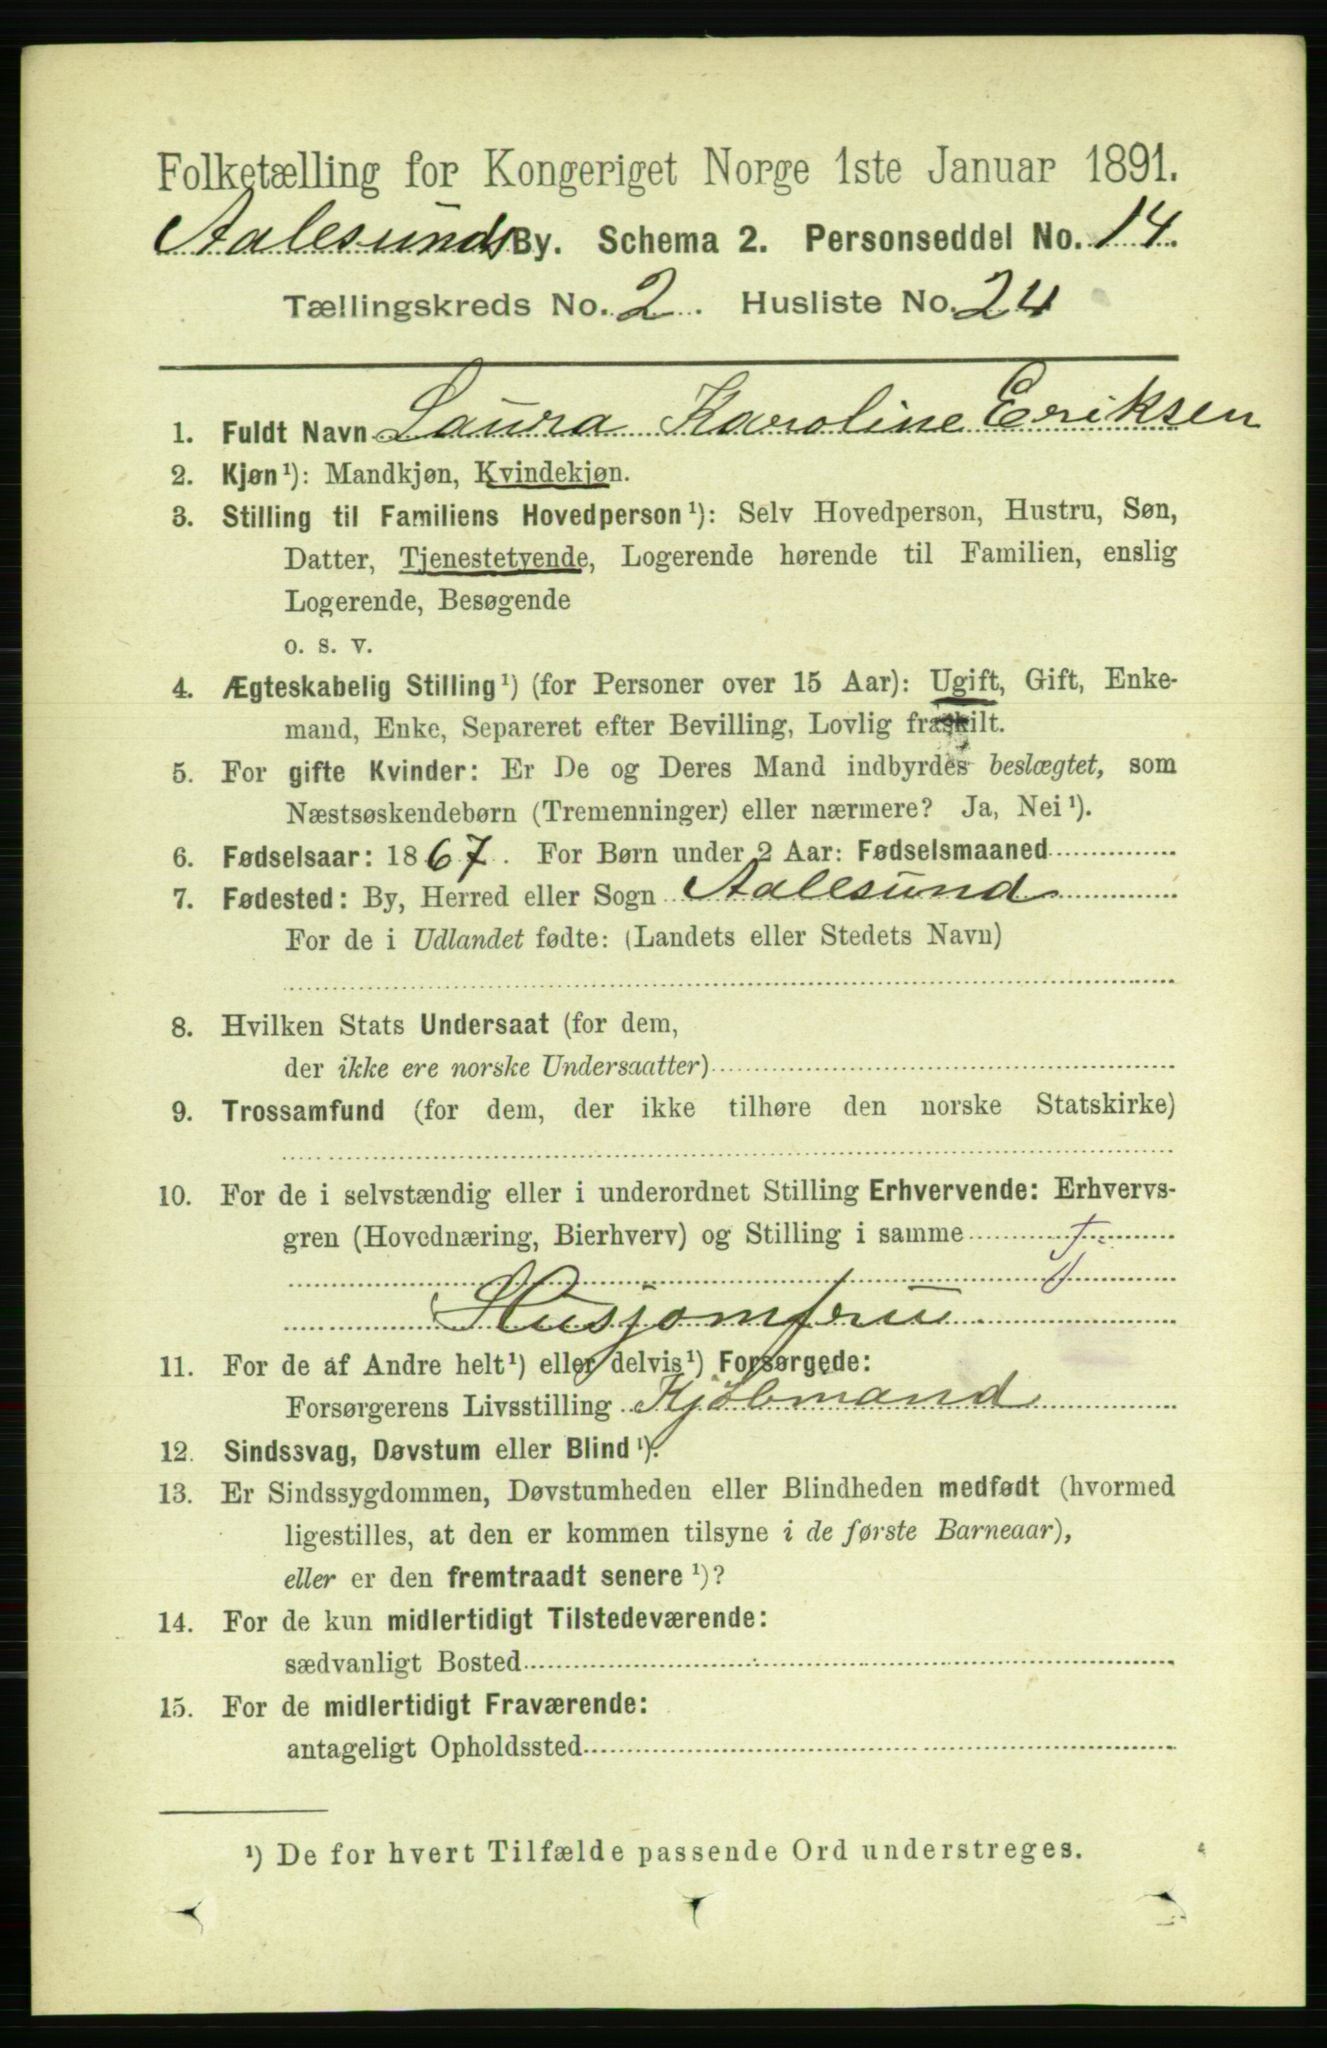 Folketælling for Kongeriget Norge 1ste Januar 1891.
Aalesunds By. Schema 2. Personseddel No. 14.
Tællingskreds No. 2. Husliste No. 24
1. Fuldt Navn Laura Karoline Eriksen
2. Kjøn¹): Mandkjøn, Kvindekjøn.
3. Stilling til Familiens Hovedperson¹): Selv Hovedperson, Hustru, Søn,
Datter, Tjenestetyende, Logerende hørende til Familien, enslig
Logerende, Besøgende
o. s. v.
4. Ægteskabelig Stilling¹) (for Personer over 15 Aar): Ugift, Gift, Enke-
mand, Enke, Separeret efter Bevilling, Lovlig fraskilt.
5. For gifte Kvinder: Er De og Deres Mand indbyrdes beslægtet, som
Næstsøskendebørn (Tremenninger) eller nærmere? Ja, Nei¹).
6. Fødselsaar: 1867. For Børn under 2 Aar: Fødselsmaaned
7. Fødested: By, Herred eller Sogn Aalesund
For de i Udlandet fødte: (Landets eller Stedets Navn)
8. Hvilken Stats Undersaat (for dem,
der ikke ere norske Undersaatter)
9. Trossamfund (for dem, der ikke tilhøre den norske Statskirke)
10. For de i selvstændig eller i underordnet Stilling Erhvervende: Erhvervs-
gren (Hovednæring, Bierhverv) og Stilling i samme
Husjomfru
11. For de af Andre helt¹) eller delvis¹) Forsørgede:
Forsørgerens Livsstilling Kjøbmand
12. Sindssvag, Døvstum eller Blind¹).
13. Er Sindssygdommen, Døvstumheden eller Blindheden medfødt (hvormed
ligestilles, at den er kommen tilsyne i de første Barneaar),
eller er den fremtraadt senere¹)?
14. For de kun midlertidigt Tilstedeværende:
sædvanligt Bosted
15. For de midlertidigt Fraværende:
antageligt Opholdssted
¹) De for hvert Tilfælde passende Ord understreges.